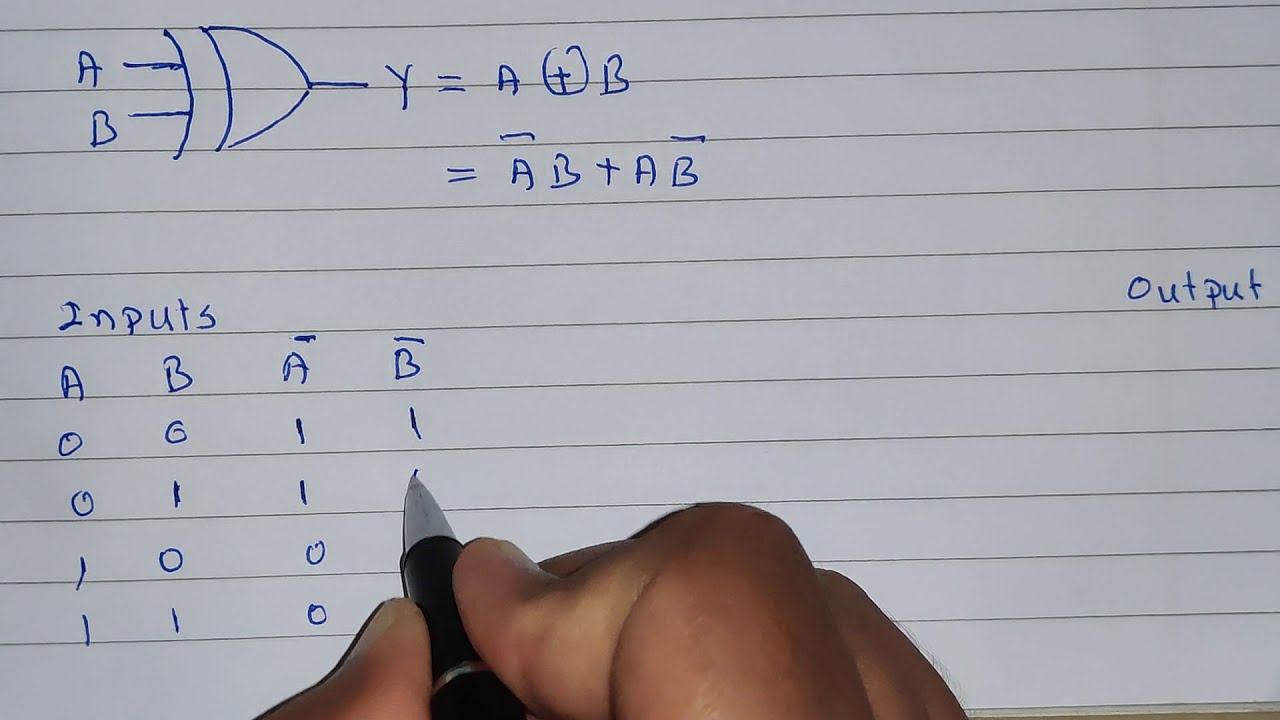 A
B
Y = A ⊕ B
= A̅ B + A B̅
Inputs
Output
A B A̅ B̅
0 0 1 1
0 1 1
1 0 0
1 1 0